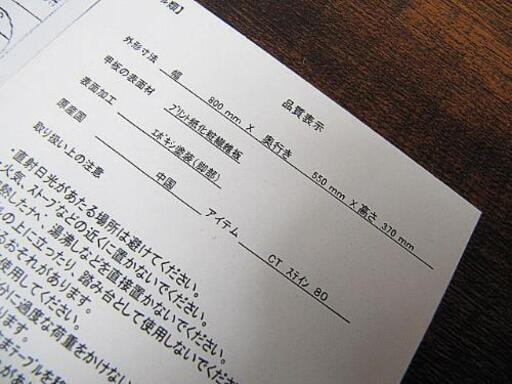 ル類】
品質表示
外形寸法 幅 800 mm × 奥行き 550 mm × 高さ 370 mm
甲板の表面材 プリント紙化粧繊維板
表面加工 エポキシ塗装(脚部)
原産国 中国 アイテム CT ステイン 80
取り扱い上の注意
・直射日光があたる場所は避けてください。
・火気、ストーブなどの近くに直かないでください。
熱したナベ・湯沸しなどを直接置かないでください。
の上に立ったり、踏み台として使用しないでくだ
るおそれがあります。
使用してください。
分に過度な荷重をかけない
ります。